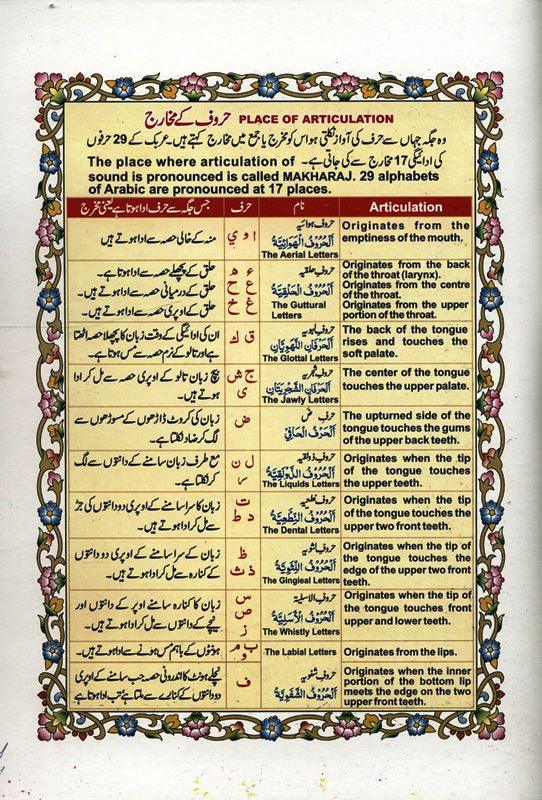 حروف کے مخارج PLACE OF ARTICULATION
وہ جگہ جہاں سے حرف کی آواز نکلتی ہو اس کو مخرج یا جمع میں مخارج کہتے ہیں۔ عربک کے 29 حرفوں
کی ادائیگی 17 مخارج سے کی جاتی ہے۔ The place where articulation of
sound is pronounced is called MAKHARAJ. 29 alphabets
of Arabic are pronounced at 17 places.
جس جگہ سے حرف ادا ہوتا ہے یعنی مخرج حرف نام Articulation
منہ کے خالی حصہ سے ادا ہوتے ہیں
ا و ي
حروف ہوائیہ
اَلْحُرُوْفُ الْهَوَائِيَّةُ
The Aerial Letters
Originates from the
emptiness of the mouth.
حلق کے پچھلے حصہ سے ادا ہوتا ہے۔
حلق کے درمیانی حصہ سے ادا ہوتے ہیں۔
حلق کے اوپری حصہ سے ادا ہوتے ہیں۔
ء ه
ع ح
غ خ
حروف حلقیہ
اَلْحُرُوْفُ الْحَلْقِيَّةُ
The Guttural
Letters
Originates from the back
of the throat (larynx).
Originates from the centre
of the throat.
Originates from the upper
portion of the throat.
ان کی ادائیگی کے وقت زبان کا پچھلا حصہ اٹھتا
ہے اور تالو کے نرم حصہ سے مس کرتا ہے۔
ق ك
اَلْحَرْفَانِ اللَّهَوِيَّانِ
The Glottal Letters
The back of the tongue
rises and touches the
soft palate.
بیچ زبان تالو کے اوپری حصہ سے مل کر ادا
ہوتے ہیں۔
ج ش
ي
اَلْحَرْفَانِ الشَّجْرِيَّتَانِ
The Jawly Letters
The center of the tongue
touches the upper palate.
زبان کی کروٹ داڑھوں کے مسوڑھوں سے
لگ کر ضاد نکلتا ہے۔
ض
حرف ض
اَلْحَرْفُ الْحَافِي
The upturned side of the
tongue touches the gums
of the upper back teeth.
مع طرف زبان سامنے کے دانتوں سے لگ
کر نکلتا ہے۔
ل ن
ر
حروف ذولقیہ
اَلْحُرُوْفُ الذَّوْلَقِيَّةُ
The Liquids Letters
Originates when the tip
of the tongue touches
the upper teeth.
زبان کا سرا سامنے کے اوپری دو دانتوں کی جڑ
سے مل کر ادا ہوتے ہیں۔
ت
د ط
حروف نطعیہ
اَلْحُرُوْفُ النِّطْعِيَّةُ
The Dental Letters
Originates when the tip
of the tongue touches the
upper two front teeth.
زبان کے سرا سامنے کے اوپری دو دانتوں
کے کنارہ سے مل کر ادا ہوتے ہیں۔
ظ
ذ ث
حروف لثویہ
اَلْحُرُوْفُ اللِّثَوِيَّةُ
The Gingieal Letters
Originates when the tip of
the tongue touches the
edge of the upper two front
teeth.
زبان کا کنارہ سامنے اوپر کے دانتوں اور
نیچے کے دانتوں سے مل کر ادا ہوتے ہیں۔
س
ص
ز
حروف الاسلیۃ
اَلْحُرُوْفُ الْاَسَلِيَّةُ
The Whistly Letters
Originates when the tip of
the tongue touches front
upper and lower teeth.
ہونٹوں کے باہم مس ہونے سے ادا ہوتے ہیں۔
ب م
و
The Labial Letters
Originates from the lips.
نچلے ہونٹ کا اندرونی حصہ جب سامنے کے اوپری
دو دانتوں کے کنارے سے ملتا ہے تب ادا ہوتا ہے
ف
حروف شفویہ
اَلْحُرُوْفُ الشَّفَوِيَّةُ
Originates when the inner
portion of the bottom lip
meets the edge on the two
upper front teeth.